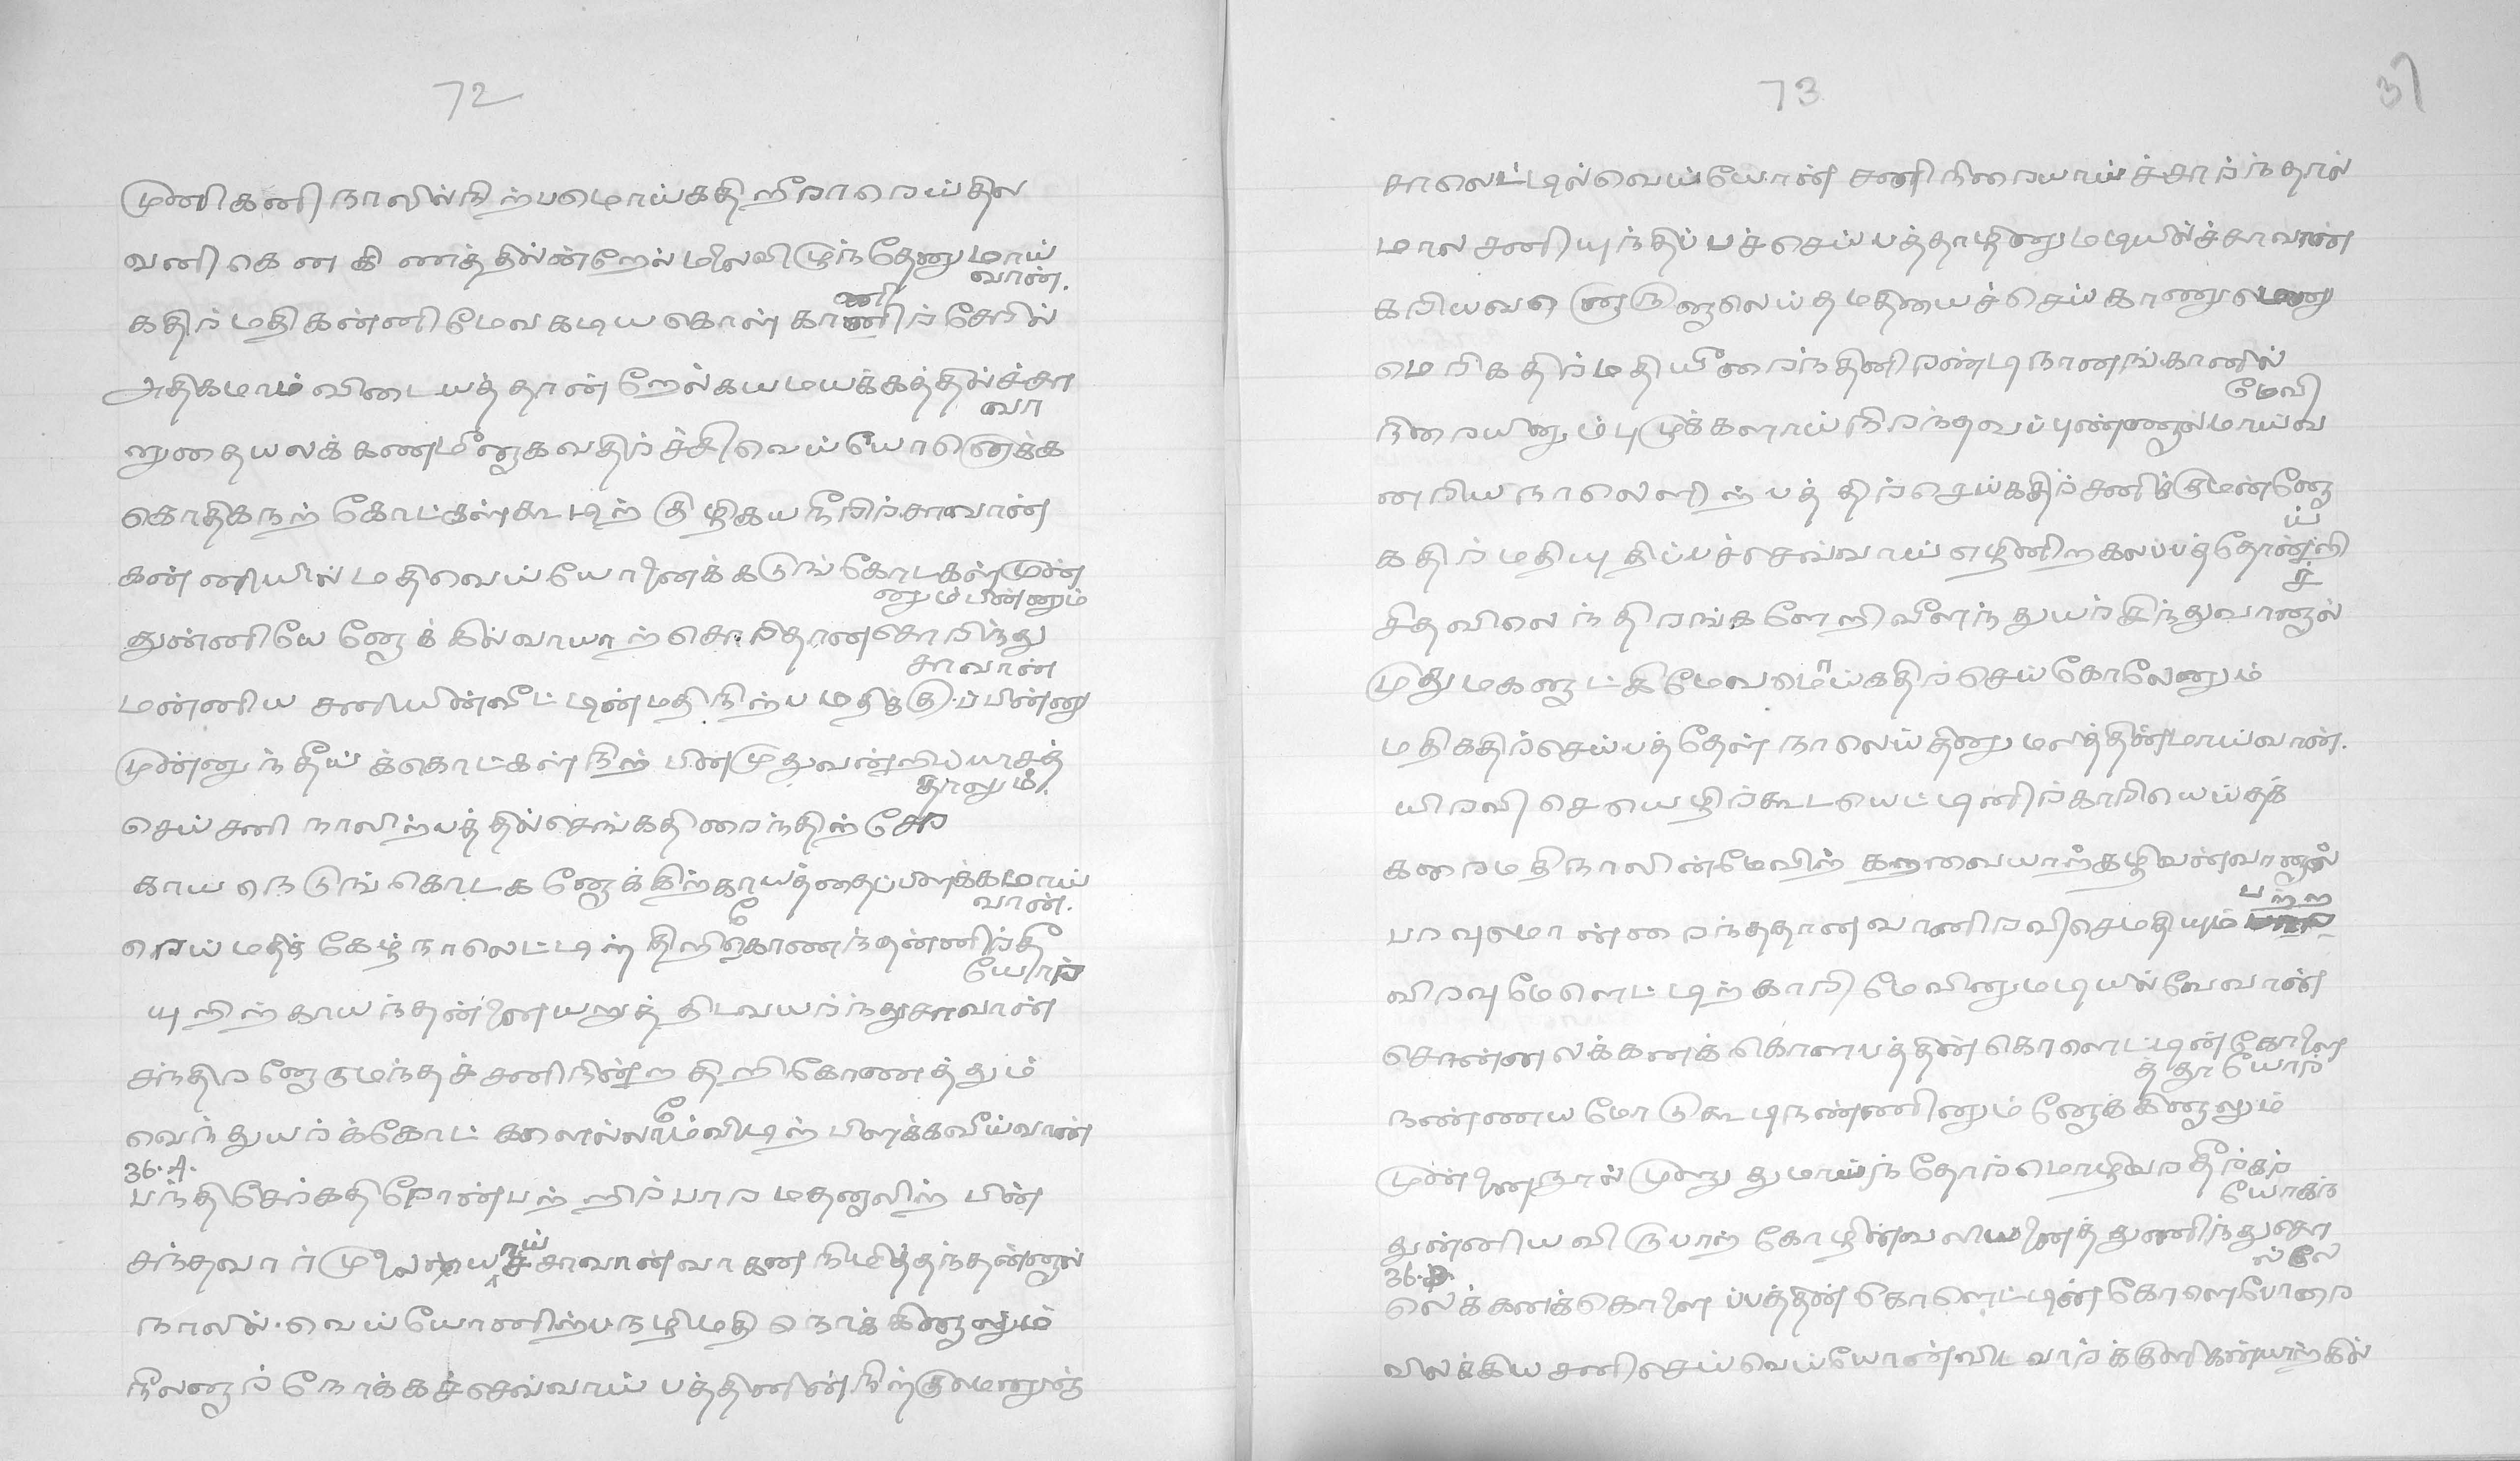 72
முனிகனி நாலில் நிற்ப மொய்கதிரீரா றெய்தில
வனி கென கிணத்தில்ன்றேல் மிலவிழுந்தேனு மாய்
வான்.
கதிர் மதி கன்னி மேவ கடிய கொள் காணிற் சேரில்
அதிகமாம் விடையத் தான் றேல்கய மயக்கத்தில்ச்சா
வா
னுதையலக்கணமீனாகவதிர்ச்சி வெய்யோனொக்க
கொதிகநற் கோட்கள்கூடிற் குழிகய நீரிற்சாவான்
கன்னியில் மதிவெய்யோனைக் கடுங் கோடகள்முன்
னும் பின்னும்
துன்னியே னோக்கில்வாயாற் சொரிதானசொரிந்து
சாவான்
மன்னிய சனியின்வீட்டின் மதி நிற்ப மதிக்கு ப்பின்னு
முன்னுந் தீய்க்கொட்கள் நிற்பின்முதுவன்றிப்யாசத்
தாலும்.
செய் சனி நாலிற்பத்தில் செங்கதி ரைந்திற் சேர
காய நெடுங் கொடக னோக்கிற்காயத்தைப்பிளக்கமாய்
வான்.
றெய் மதிக் கேழ் நாலெட்டிற் திறிகோணந்தன்னிற்தீ
யோர்
யுறிற் காயந்தன்னையறுத் திடவயர்ந்துசாவான்
சந்திர னோடுமந்தச் சனிநின்ற திறிகோணத்தும்
வெந்துயர்க்கோட் களெல்லாம்விடிற் பிளக்கவீய்வான்
36.A.
பந்திசேர்கதிரோன்பற் றிற்பார மதனலிற் பின்
சந்தவார் முலையாய்ச் சாவான்வாகன நிமித்தந்தன்னால்
நாலில் வெய்யோனிற்பநழிமதி நோக்கினாலும்
நீலனார் நோக்கச்செவ்வாய் பத்தினின் நிற்குமெனுந்
73
37
சாலெட்டில்வெய்யோன் சனி நிரையாய்ச்சார்ந்தால்
மால சனியுந்திப்பச்செய் பத்தாழினு மடியில்ச்சாவான்
கரியவ னாலெய்த மதியைச்செய் காணுமெனு
மெரிகதிர்மதியீரைந்தினிரண்டிநானங்கானில்
மேவி
நிரையினும்புழுக்களாய் நிரந்தவப்புண்ணால்மாய்வ
னரிய நாலெனிற்பத்திற்செய்கதிர்சனிக்குமன்னே
ய்
கதிர் மதியுதிப்பச்செவ்வாய் எழினிறகலப்பத்தோன்றி
ச்
சிதவிலெந்திரங்களேறி வீளந்துயர்சிந்துவானால்
முதுமகளாட்சிமேவ மொய்கதிர்செய்கோலேனும்
மதிகதிர்செய்பத்தேள் நாலெய்தினு மலத்தின்மாய்வான்.
யிரவி செயெழிற்கூடயெட்டினிற்காரியெய்தக்
கரைமதிநாலின்மேவிற் கறுவையாற்கழிவன்வானூல்
பற்ற
பரவுமொன்றைந்ததானவானிரவிசெமதியும்
விரவு மேளெட்டிற்காரி மேவினுமடியில்வேவான்
சொன்னலக்கனக்கொளபத்தின்கொளெட்டின்கோளை
த்தூயோர்
நண்ணய மோடுகூடிநண்ணினும் னோக்கினாலும்
முன்னைநூல் முனறுதுமாய்ந்தோர்மொழிவரதீர்கர்
யோகந்
துன்னிய விருபாற் கோழின்வலியினைத்துணிந்துசொ
ல்லே
36.B.
லெக்கனக்கொளைப்பத்தின் கொளெட்டின்கோளெபோரை
விலக்கிய சனிசெய்வெய்யோன்விடவார்க்குளிகன்யாற்கில்